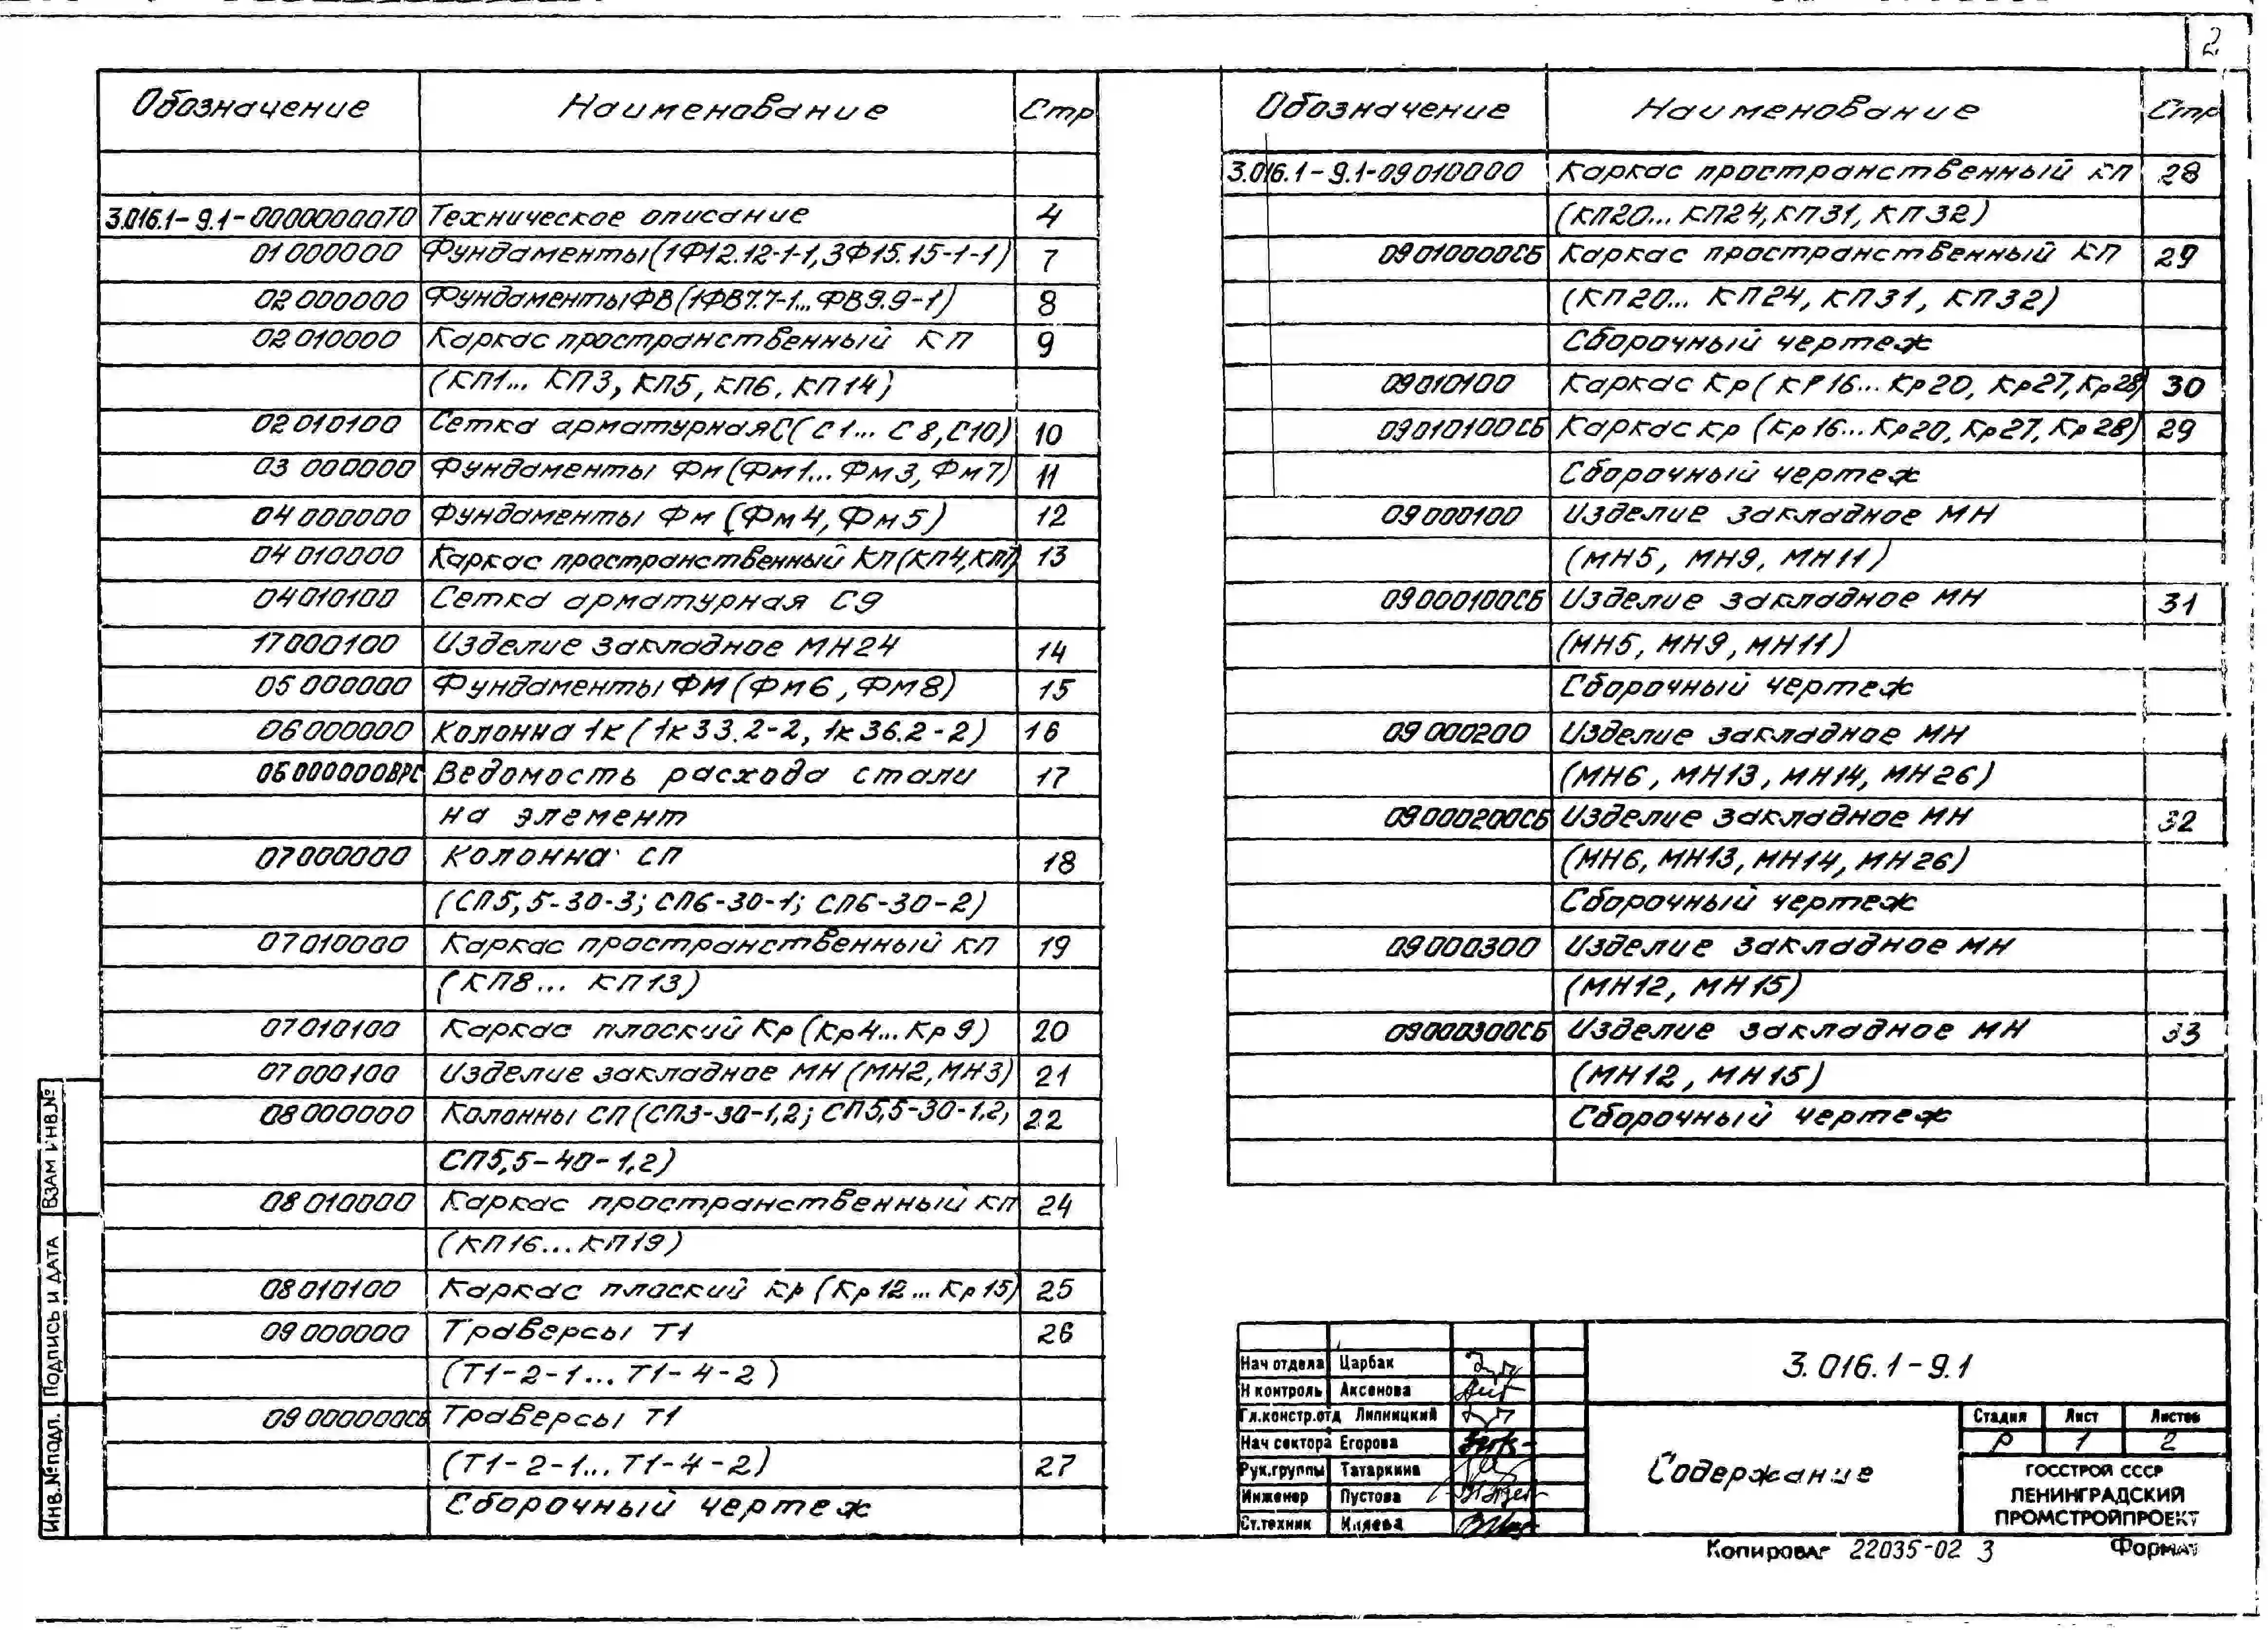 2
Обозначение Наименование Стр
3.016.1-9.1-00000000ТО Техническое описание 4
01000000 Фундаменты(1Ф12.12-1-1,3Ф15.15-1-1) 7
02000000 ФундаментыФВ(1ФВ7.7-1...ФВ9.9-1) 8
02010000 Каркас пространственный КП 9
(КП1... КП3, КП5, КП6, КП14)
02010100 Сетка арматурнаяС(С1... С8,С10) 10
03 000000 Фундаменты Фм(Фм1...Фм3, Фм7) 11
04000000 Фундаменты Фм (Фм4, Фм5) 12
04010000 Каркас пространственный КП(КП4,КП7) 13
04010100 Сетка арматурная С9
17000100 Изделие закладное МН24 14
05000000 Фундаменты ФМ(Фм6, ФМ8) 15
06000000 Колонна 1к(1к33.2-2, 1к36.2-2) 16
06000000ВРС Ведомость расхода стали 17
на элемент
07000000 Колонна СП 18
(СП5,5-30-3; СП6-30-1; СП6-30-2)
07010000 Каркас пространственный КП 19
(КП8... КП13)
07010100 Каркас плоский Кр(Кр4...Кр9) 20
07000100 Изделие закладное МН(МН2,МН3) 21
08000000 Колонны СП(СП3-30-1,2; СП5,5-30-1,2, 22
СП5,5-40-1,2)
08010000 Каркас пространственный КП 24
(КП16...КП19)
08010100 Каркас плоский Кр(Кр12...Кр15) 25
09000000 Траверсы Т1 26
(Т1-2-1...Т1-4-2)
09000000СБ Траверсы Т1
(Т1-2-1...Т1-4-2) 27
Сборочный чертеж
Обозначение Наименование Стр
3.016.1-9.1-09010000 Каркас пространственный КП 28
(КП20...КП24, КП31, КП32)
09010000СБ Каркас пространственный КП 29
(КП20... КП24, КП31, КП32)
Сборочный чертеж
09010100 Каркас Кр(Кр16...Кр20, Кр27,Кр28) 30
09010100СБ Каркас Кр (Кр16...Кр20, Кр27, Кр28) 29
Сборочный чертеж
09000100 Изделие закладное МН
(МН5, МН9, МН11)
09000100СБ Изделие закладное МН 31
(МН5, МН9, МН11)
Сборочный чертеж
09000200 Изделие закладное МН
(МН6, МН13, МН14, МН26)
09000200СБ Изделие закладное МН 32
(МН6, МН13, МН14, МН26)
Сборочный чертеж
09000300 Изделие закладное МН
(МН12, МН15)
09000300СБ Изделие закладное МН 33
(МН12, МН15)
Сборочный чертеж
ВЗАМ ИНВ.№
Подпись и дата
Инв.№ подл.
Нач отдела Царбак
Н контроль Аксенова
Гл.констр.отд Липницкий
Нач сектора Егорова
Рук.группы Татаркина
Инженер Пустова
Ст.техник
3.016.1-9.1
Содержание
Стадия Лист Листов
Р 1 2
ГОССТРОЙ СССР
ЛЕНИНГРАДСКИЙ
ПРОМСТРОЙПРОЕКТ
Копировал 22035-02 3 Формат